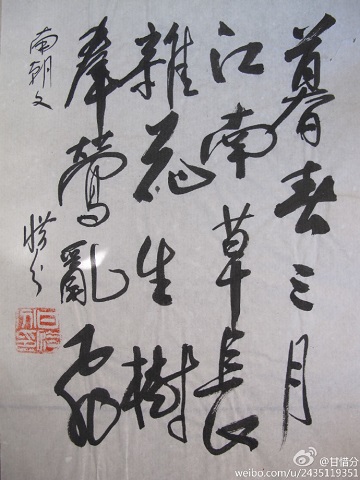 暮春三月
江南草長
雜花生樹
羣鶯亂飛
南朝文
惜分
@甘惜分
weibo.com/u/2435119351